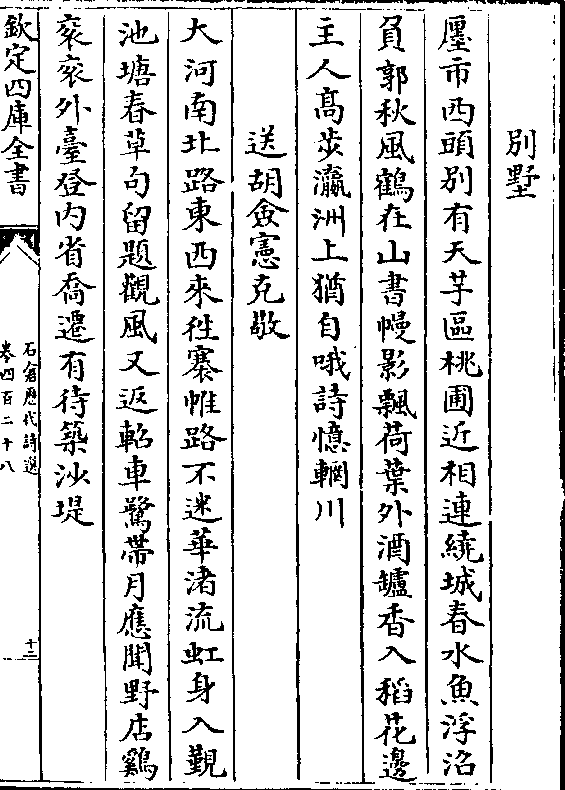 別墅
廛市西頭别有天芋區桃圃近相連繞城春水魚浮沼
負郭秋風鶴在山書幔影飄荷葉外酒罏香入稻花邊
主人髙步瀛洲上猶自哦詩憶輞川
送胡僉憲克敬
大河南北路東西來徃褰帷路不迷華渚流虹身入覲
池塘春草句留題觀風又返軺車鷺帶月應聞野店鷄
衮衮外臺登内省喬遷有待築沙堤
欽定四庫全書
石倉歷代詩選
卷四百二十八
十二